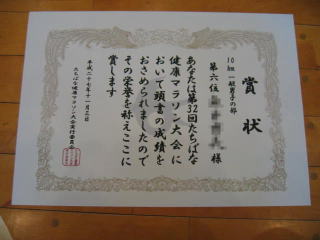 賞状
10km 一般男子の部
第六位
様
あなたは第32回たちばな
健康マラソン大会に
おいて頭書の成績を
おさめられましたので
その栄誉を称えここに
賞します
平成二十七年十一月三日
たちばな健康マラソン大会実行委員会